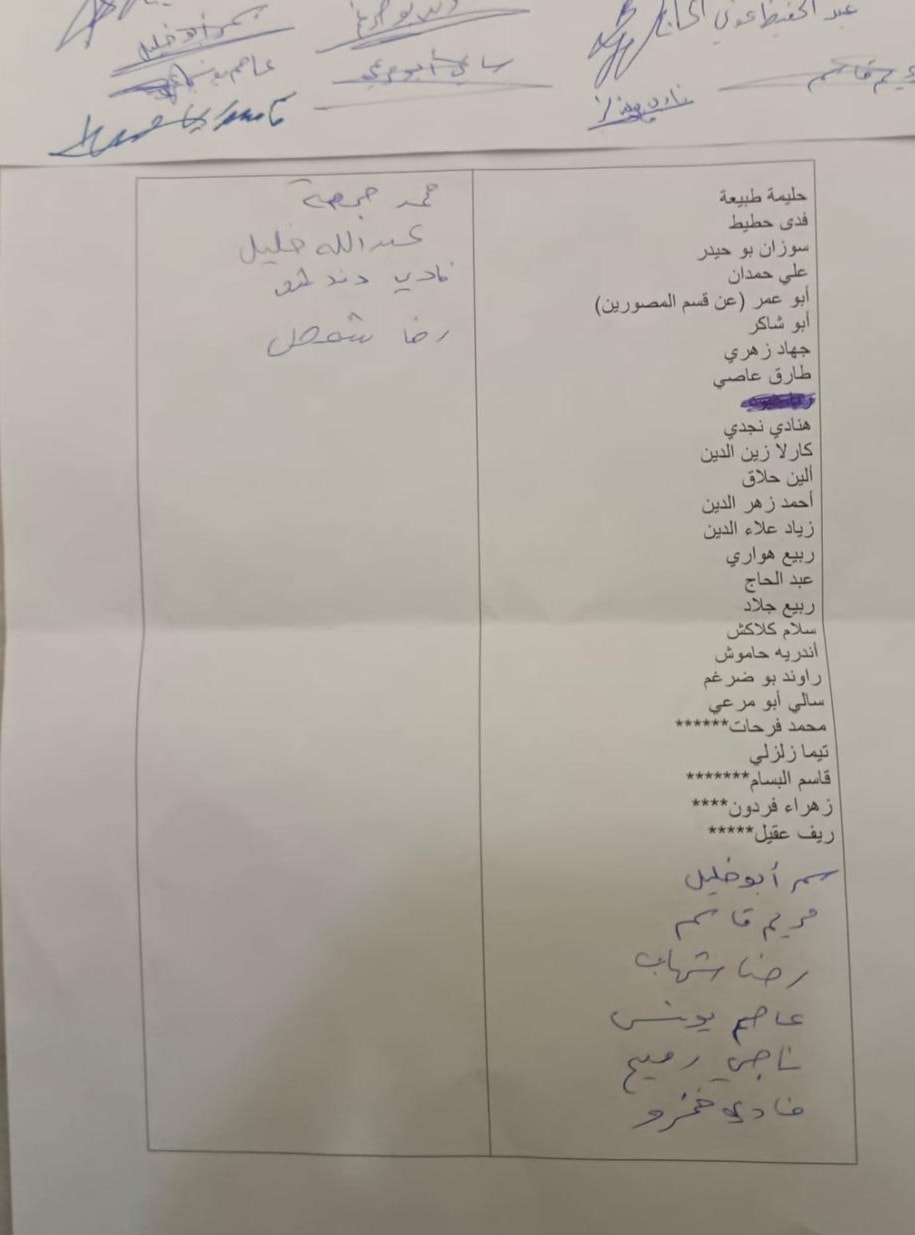 عبد الحفيظ عوني الحاج
سمر أبو خليل
سالي أبو مرعي
عاصم
مريم قاسم
نادي
حليمة طبيعة
فدى حطيط
سوزان بو حيدر
علي حمدان
أبو عمر (عن قسم المصورين)
أبو شاكر
جهاد زهري
طارق عاصي
هنادي نجدي
كارلا زين الدين
ألين حلاق
أحمد زهر الدين
زياد علاء الدين
ربيع هواري
عبد الحاج
ربيع جلاد
سلام كلاكش
أندريه حاموش
راوند بو ضرغم
سالي أبو مرعي
محمد فرحات******
تيما زلزلي
قاسم البسام*******
زهراء فردون****
ريف عقيل*****
سمر أبو خليل
مريم قاسم
رضا شهاب
عاصم يونس
ناجي رميح
فادي
محمد جمعة
عبدالله خليل
نادي
رضا